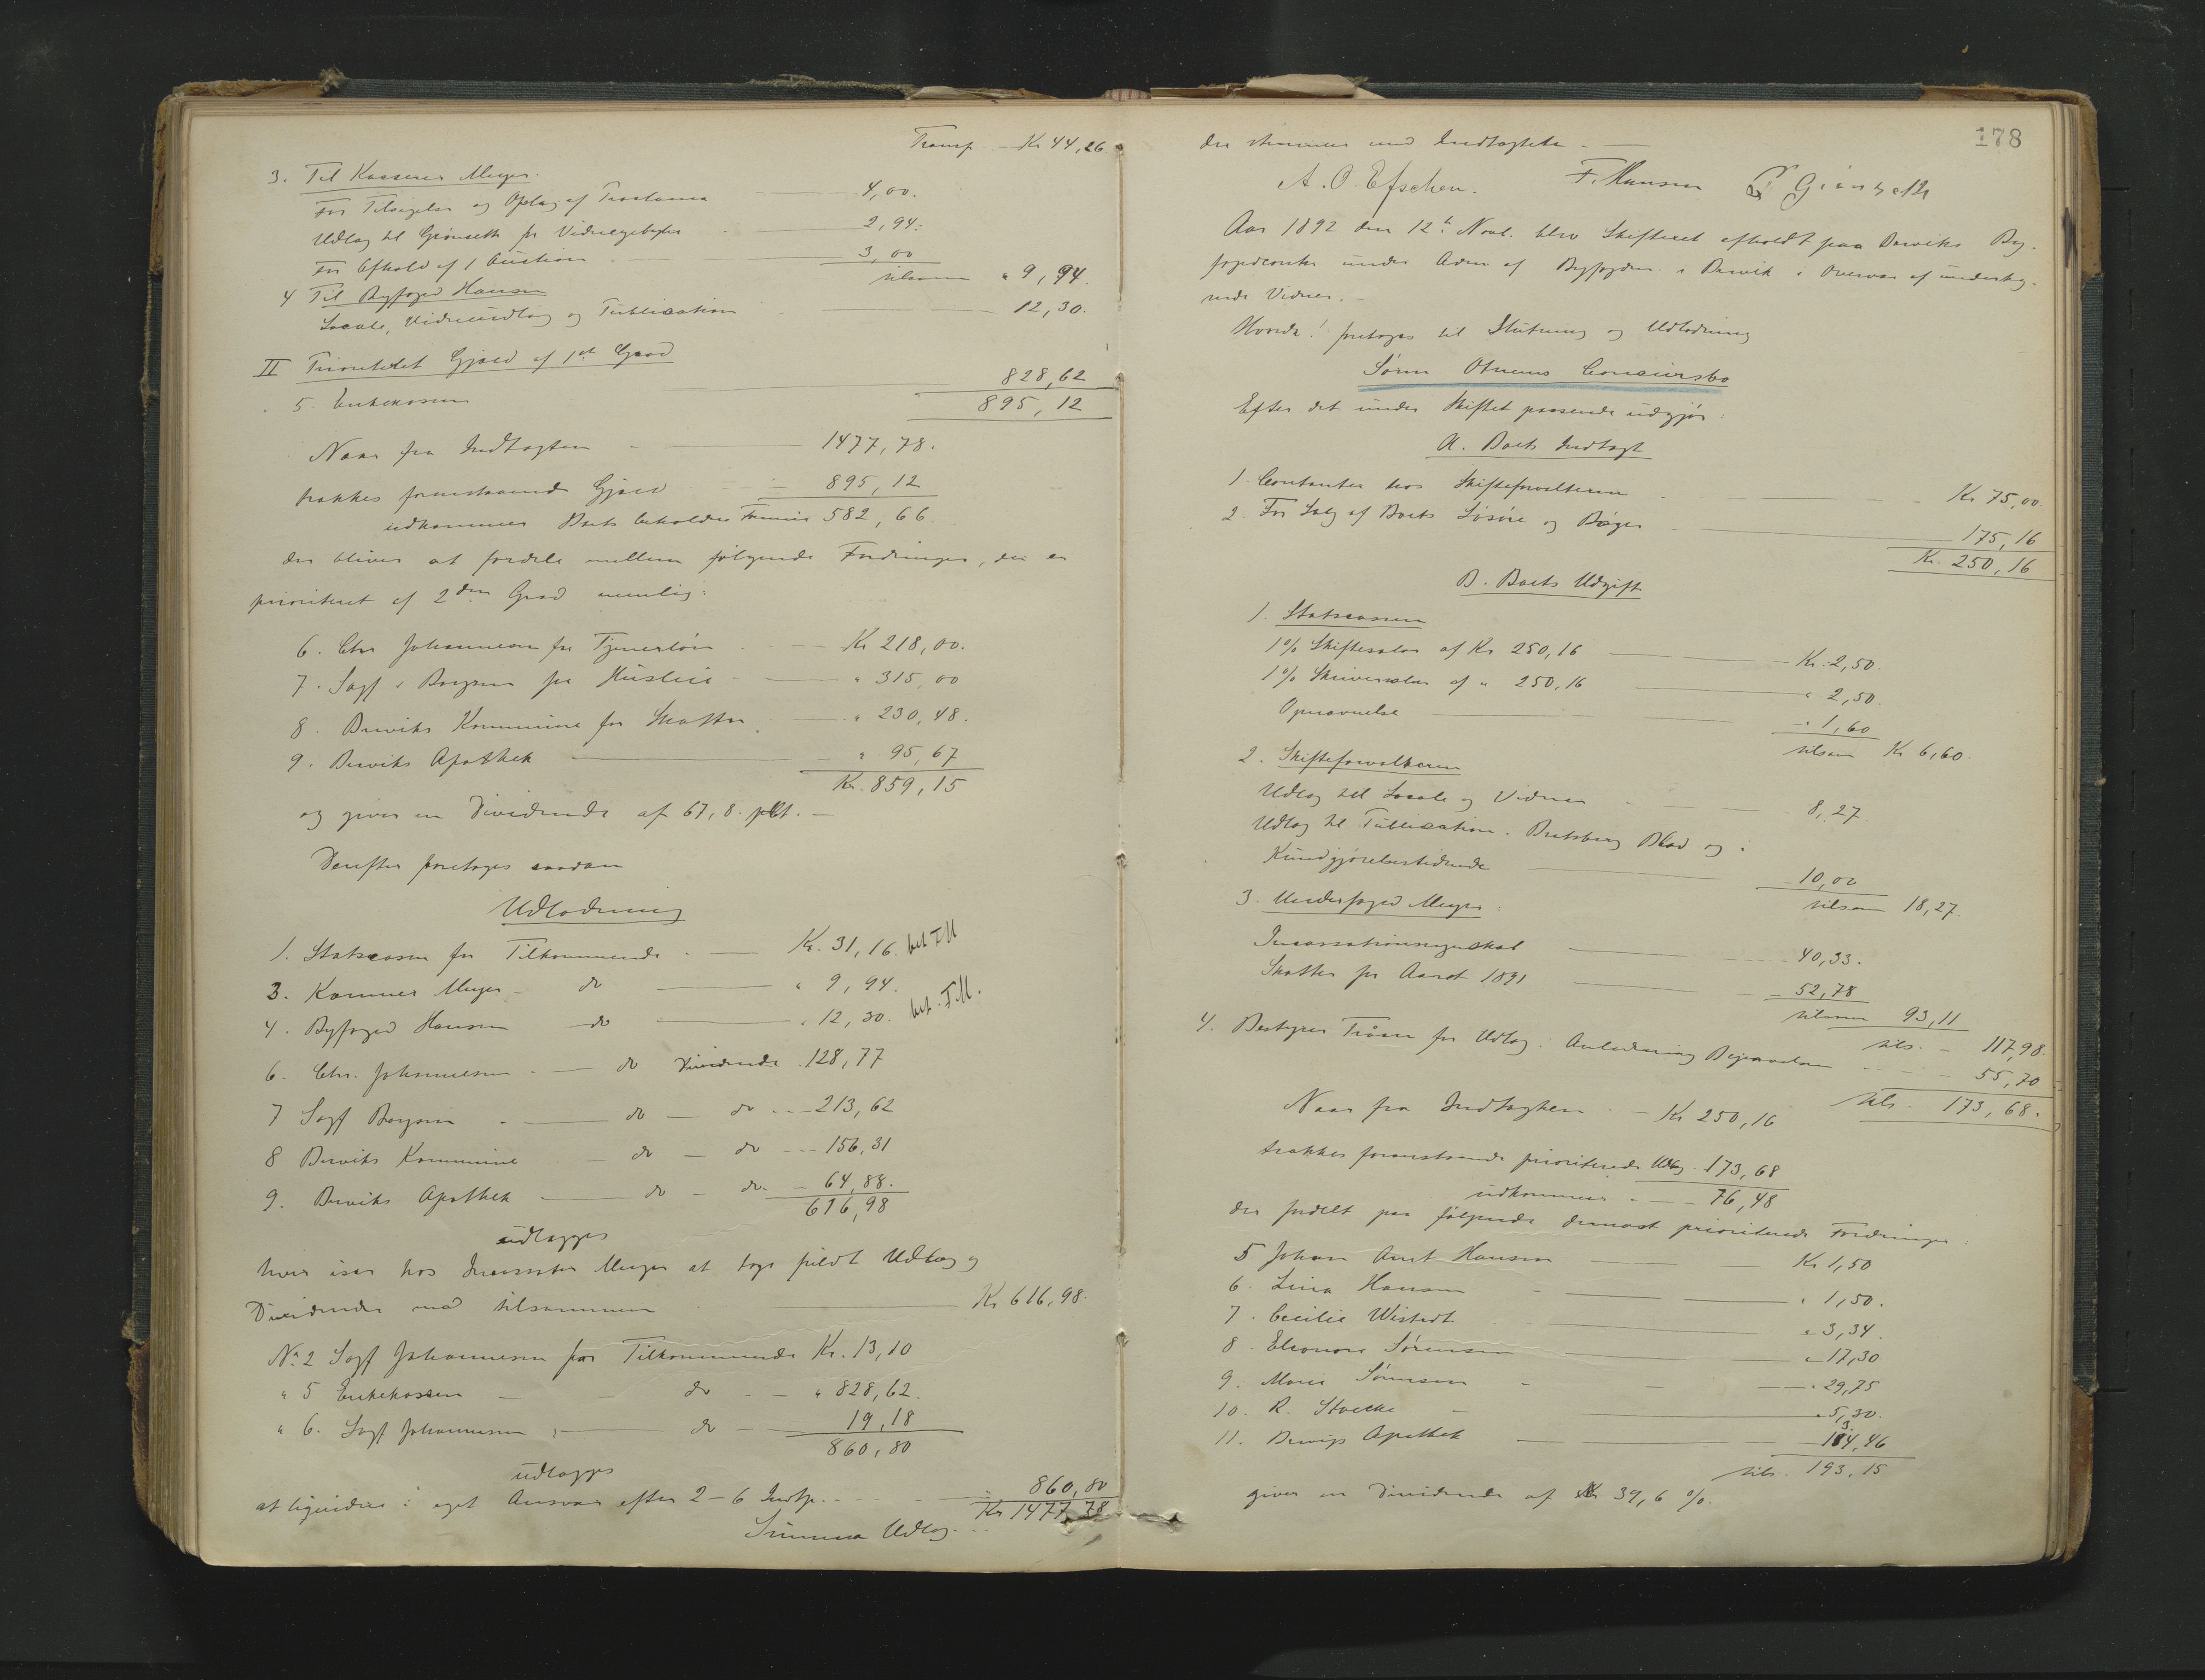 Transp. Kr 44,26
3. Til Kasserer Meyer.
For Tilsigelse og Opslag af Proclama 4,00.
Udlag til Grønseth for Vidnegebyhr 2,94.
For Afhold af 1 Auction 3,00
tilsam " 9,94.
4 Til Byfoged Hansen
Locale, Vidneudlæg og Publication 12,30.
II Prioriteret Gjæld af 1ste Grad
5. Enkekassen 828,62
895,12
Naar fra Indtægten 1477,78.
trækkes foranstaaende Gjæld 895,12
udkommer Boets beholdne Formue 582,66.
der bliver at fordele mellem følgende Fordringer, der er
prioriteret af 2den Grad nemlig:
6. Chr Johannesen for Tjenerløn Kr 218,00.
7. Sagf. Borgsen for Husleie " 315,00
8. Breviks Kommune for Skatter " 230,48.
9. Breviks Apothek " 95,67
Kr. 859,15
og giver en Dividende af 67,8 pCt. —
Derefter foretages saadan
Udlodning
1. Statscassen for Tilkommende Kr. 31,16. bet FH
3. Kæmner Meyer do " 9,94.
4. Byfoged Hansen do " 12,30. bet. F.H.
6. Chr. Johannesen do Dividende 128,77
7 Sagf Borgsen do — do 213,62
8 Breviks Kommune do — do 156,31
9. Breviks Apothek do — do 64,88.
616,98
udlægges
hver især hos Incassator Meyer at tage fuldt Udlæg og
Dividende med tilsammen Kr 616,98.
No 2 Sagf Johannesen for Tilkommende Kr. 13,10
" 5 Enkekassen do " 828,62.
" 6. Sagf Johannesen do 19,18
860,80
udlægges
at liqvidere i eget Ansvar efter 2–6 Indtgt. 860,80
Summa Udlæg Kr 1477,78
178
der stemmer med Indtægten. —
A. O. Efschen. F. Hansen G Grønseth
Aar 1892 den 12te Novb. blev Skifteret afholdt paa Breviks By-
fogedcontor under Adm af Byfogden i Brevik i Overvær af underteg-
nede Vidner. —
Hvorda! foretoges til Slutning og Udlodning
Søren Otnems Concursbo
Efter det under Skiftet passerede udgjør:
A. Boets Indtægt
1. Contanter hos Skifteforvalteren Kr 75,00
2. For Salg af Boets Løsøre og Bøger 175,16
Kr. 250,16
B. Boets Udgift
1. Statscassen
1% Skiftesalær af Kr 250,16 Kr. 2,50.
1% Skriversalær af " 250,16 " 2,50.
Opnævnelse " 1,60
tilsam Kr 6,60
2. Skifteforvalteren
Udlæg til Locale og Vidner 8,27
Udlæg til Publication. Bratsberg Blad og i
Kundgjørelsestidende 10,00
tilsam 18,27.
3. Underfoged Meyer:
Incassationsregnskab 40,33.
Skatter for Aaret 1891 52,78
tilsam 93,11
tils. — 117,98.
4. Bestyrer Tråen for Udlæg. Anledning Bejernelsen 55,70
tils. 173,68.
Naar fra Indtægten Kr 250,16
trækkes foranstaaende prioriterede Udlæg 173,68
udkommer 76,48
der fordelt paa følgende dernæst prioriterede Fordringer:
5 Johan Anst Hansen Kr 1,50
6. Lina Hansen " 1,50.
7. Cecilie Wistedt " 3,34.
8. Eleonore Sørensen " 17,30
9. Marie Sørensen " 29,75
10. R. Stoecke " 5,30.
11. Brevigs Apothek 134,46
tils. 193,15
giver en Dividende af 39,6 %.